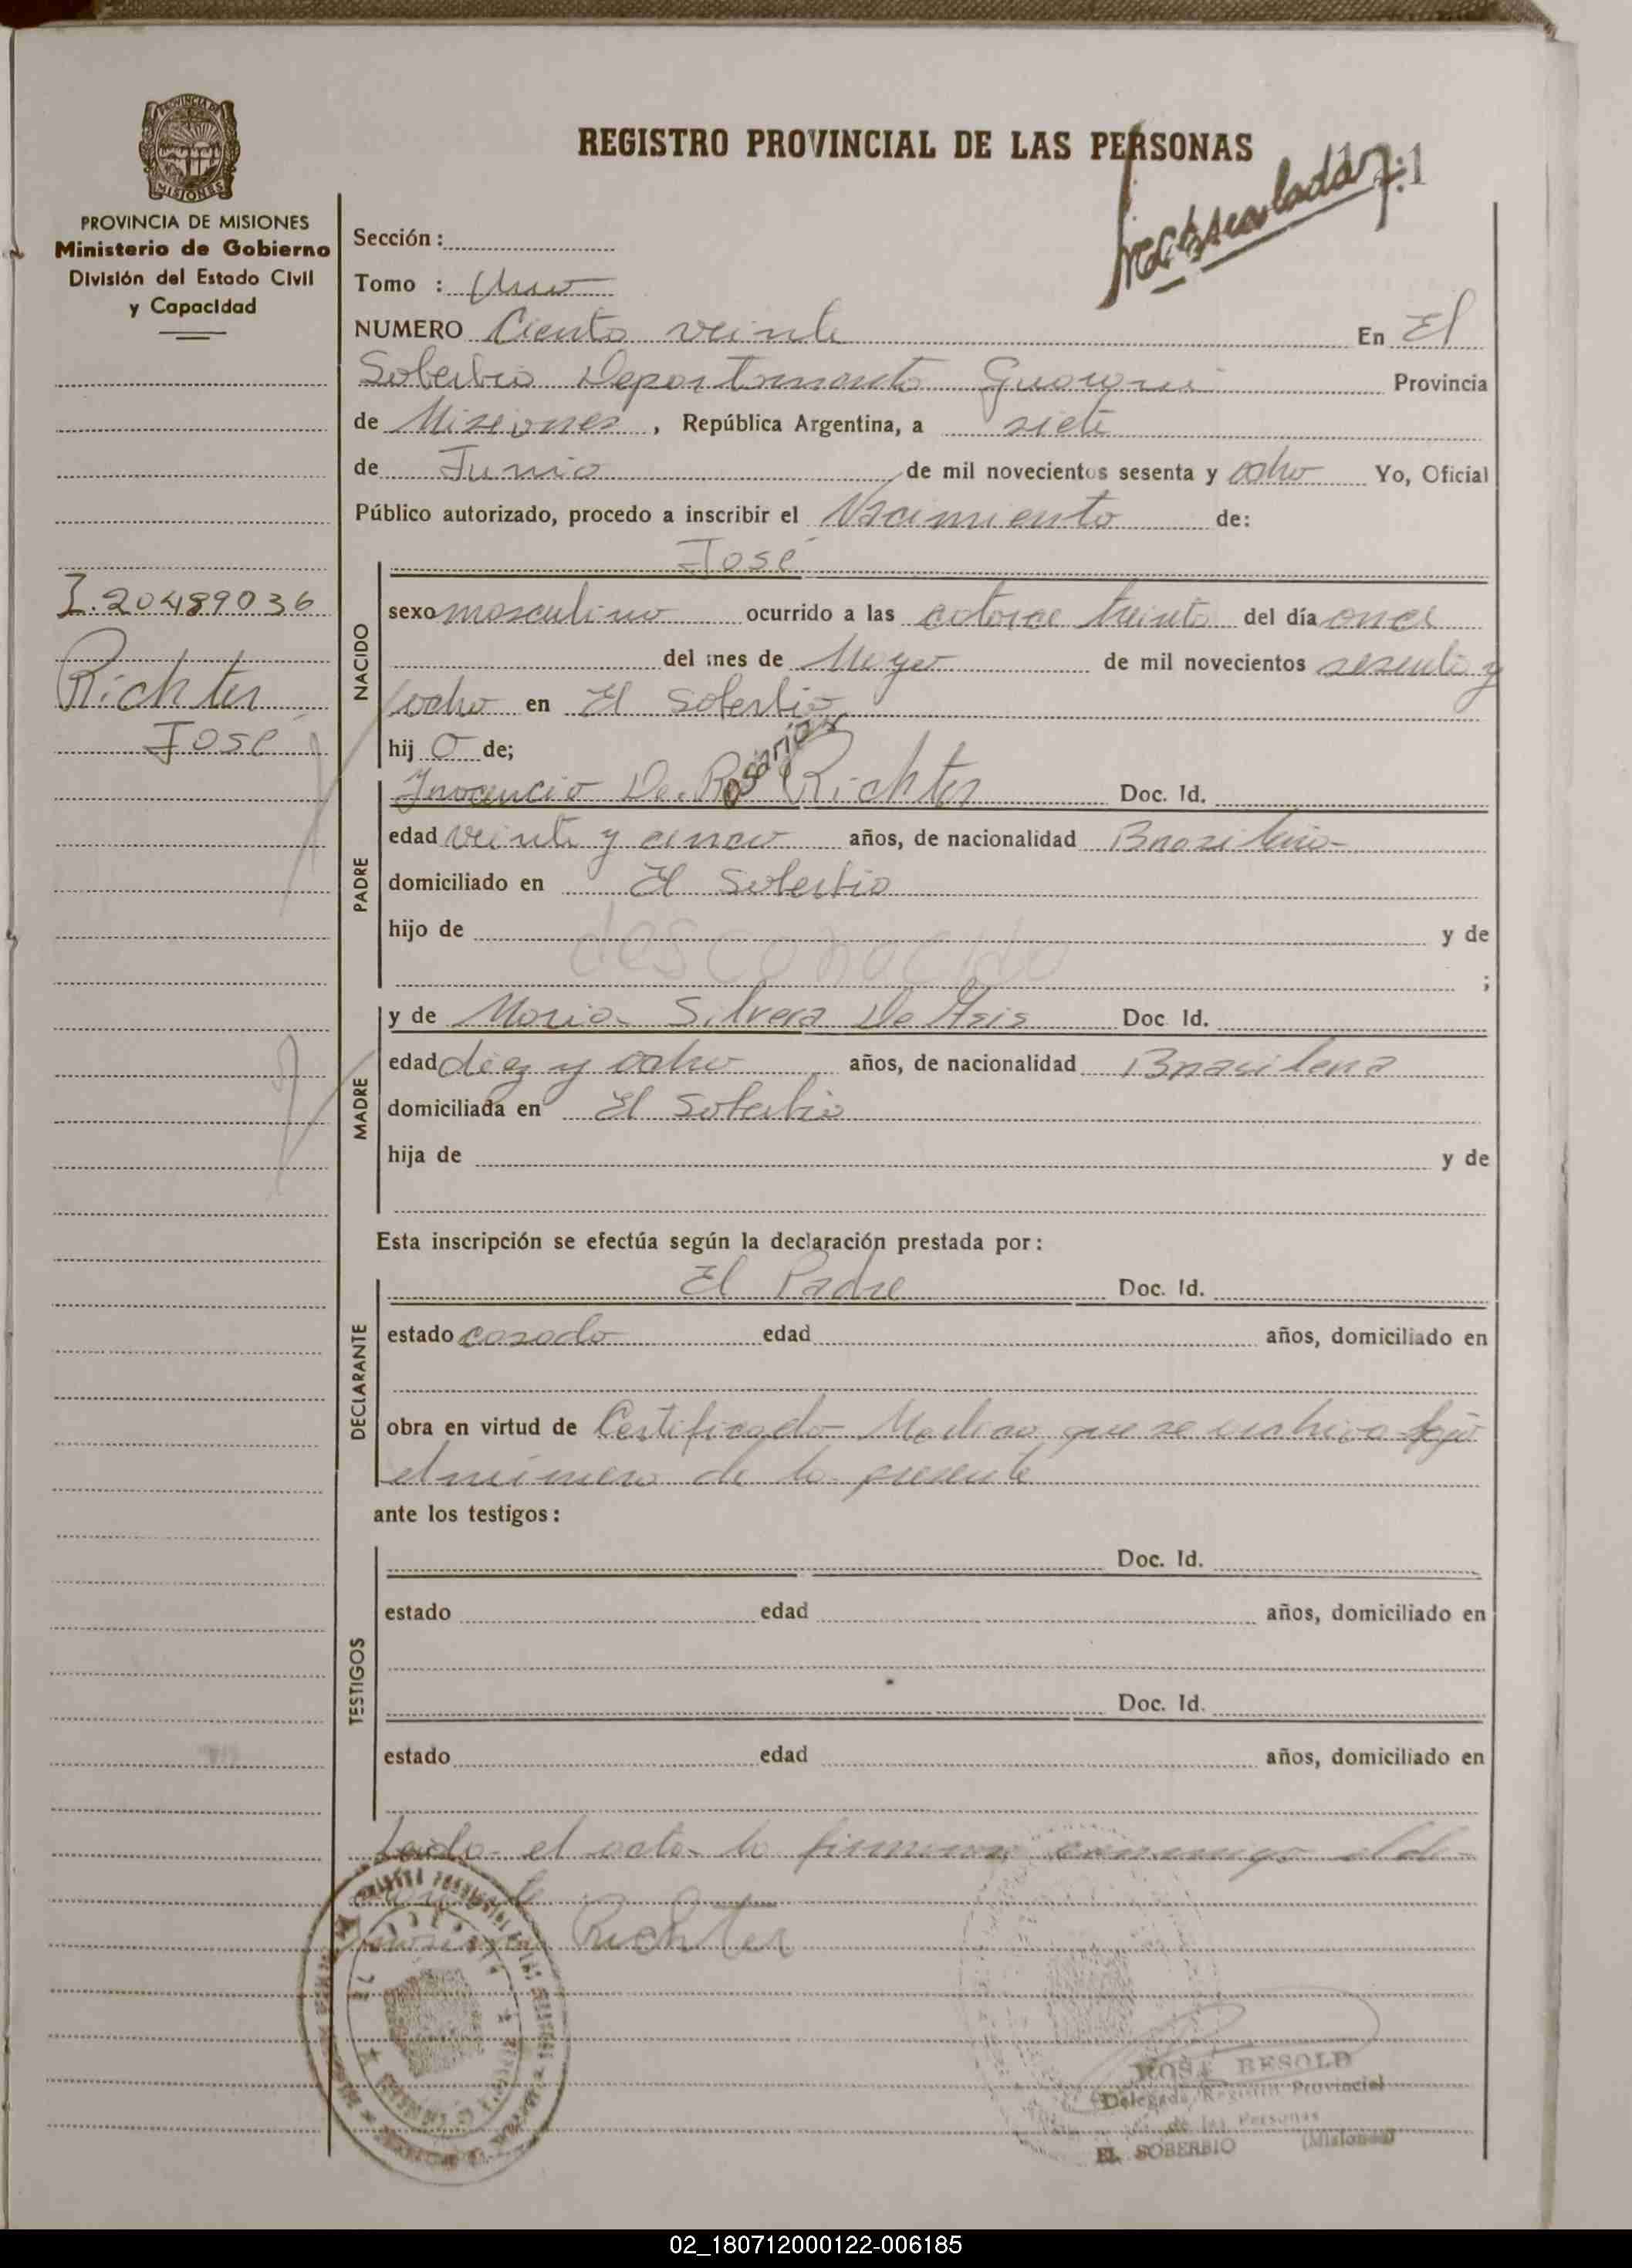 REGISTRO PROVINCIAL DE LAS PERSONAS
PROVINCIA DE MISIONES
Ministerio de Gobierno
División del Estado Civil
y Capacidad
I. 20489036
Richter
José
Sección :
Tomo : Uno
NUMERO Ciento veinte En El
Soberbio Departamento Guarani Provincia
de Misiones, República Argentina, a siete
de Junio de mil novecientos sesenta y ocho Yo, Oficial
Público autorizado, procedo a inscribir el Nacimiento de:
NACIDO
José
sexo masculino ocurrido a las catorce treinta del día once
del mes de Mayo de mil novecientos sesenta y
ocho en El Soberbio
hij o de;
PADRE
Inocencio De. Rosario Richter Doc. Id.
edad veinte y cinco años, de nacionalidad Brasilero
domiciliado en El Soberbio
hijo de desconocido y de
;
MADRE
y de Maria Silvera De Asis Doc Id.
edad diez y ocho años, de nacionalidad Brasilera
domiciliada en El Soberbio
hija de y de
Esta inscripción se efectúa según la declaración prestada por:
DECLARANTE
El Padre Doc. Id.
estado casado edad años, domiciliado en
obra en virtud de Certificado Medico que se archiva bajo
el número de la presente
ante los testigos:
TESTIGOS
Doc. Id.
estado edad años, domiciliado en
Doc. Id.
estado edad años, domiciliado en
Leida el acta la firman conmigo el de
Richter
ROSA BESOLD
Delegada Registro Provincial
de las Personas
EL SOBERBIO (Misiones)
02_180712000122-006185